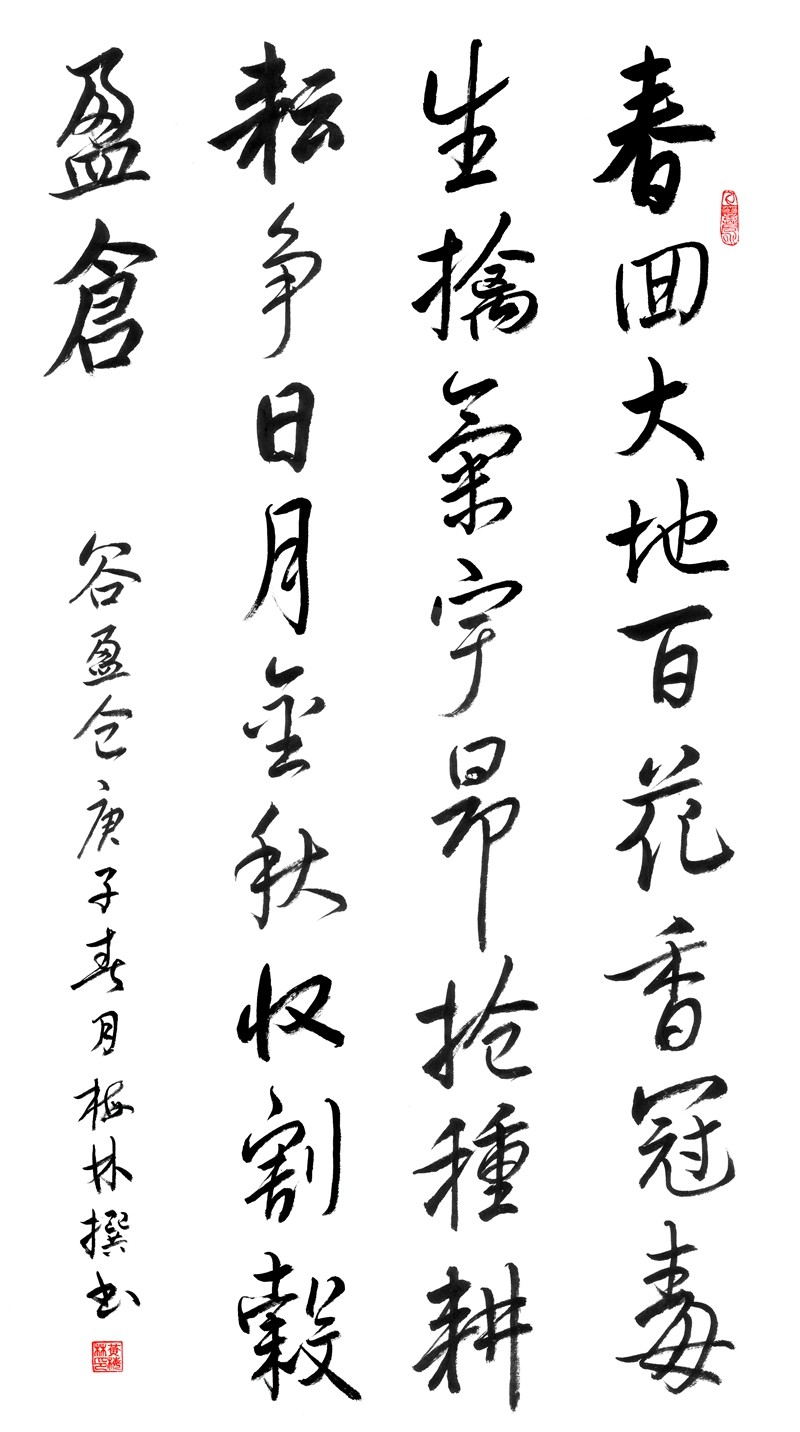 春回大地百花香冠毒
生擒氣宇昂抢種耕
耘争日月金秋收割穀
盈倉
谷盈仓庚子春月梅林撰书
黄梅林印